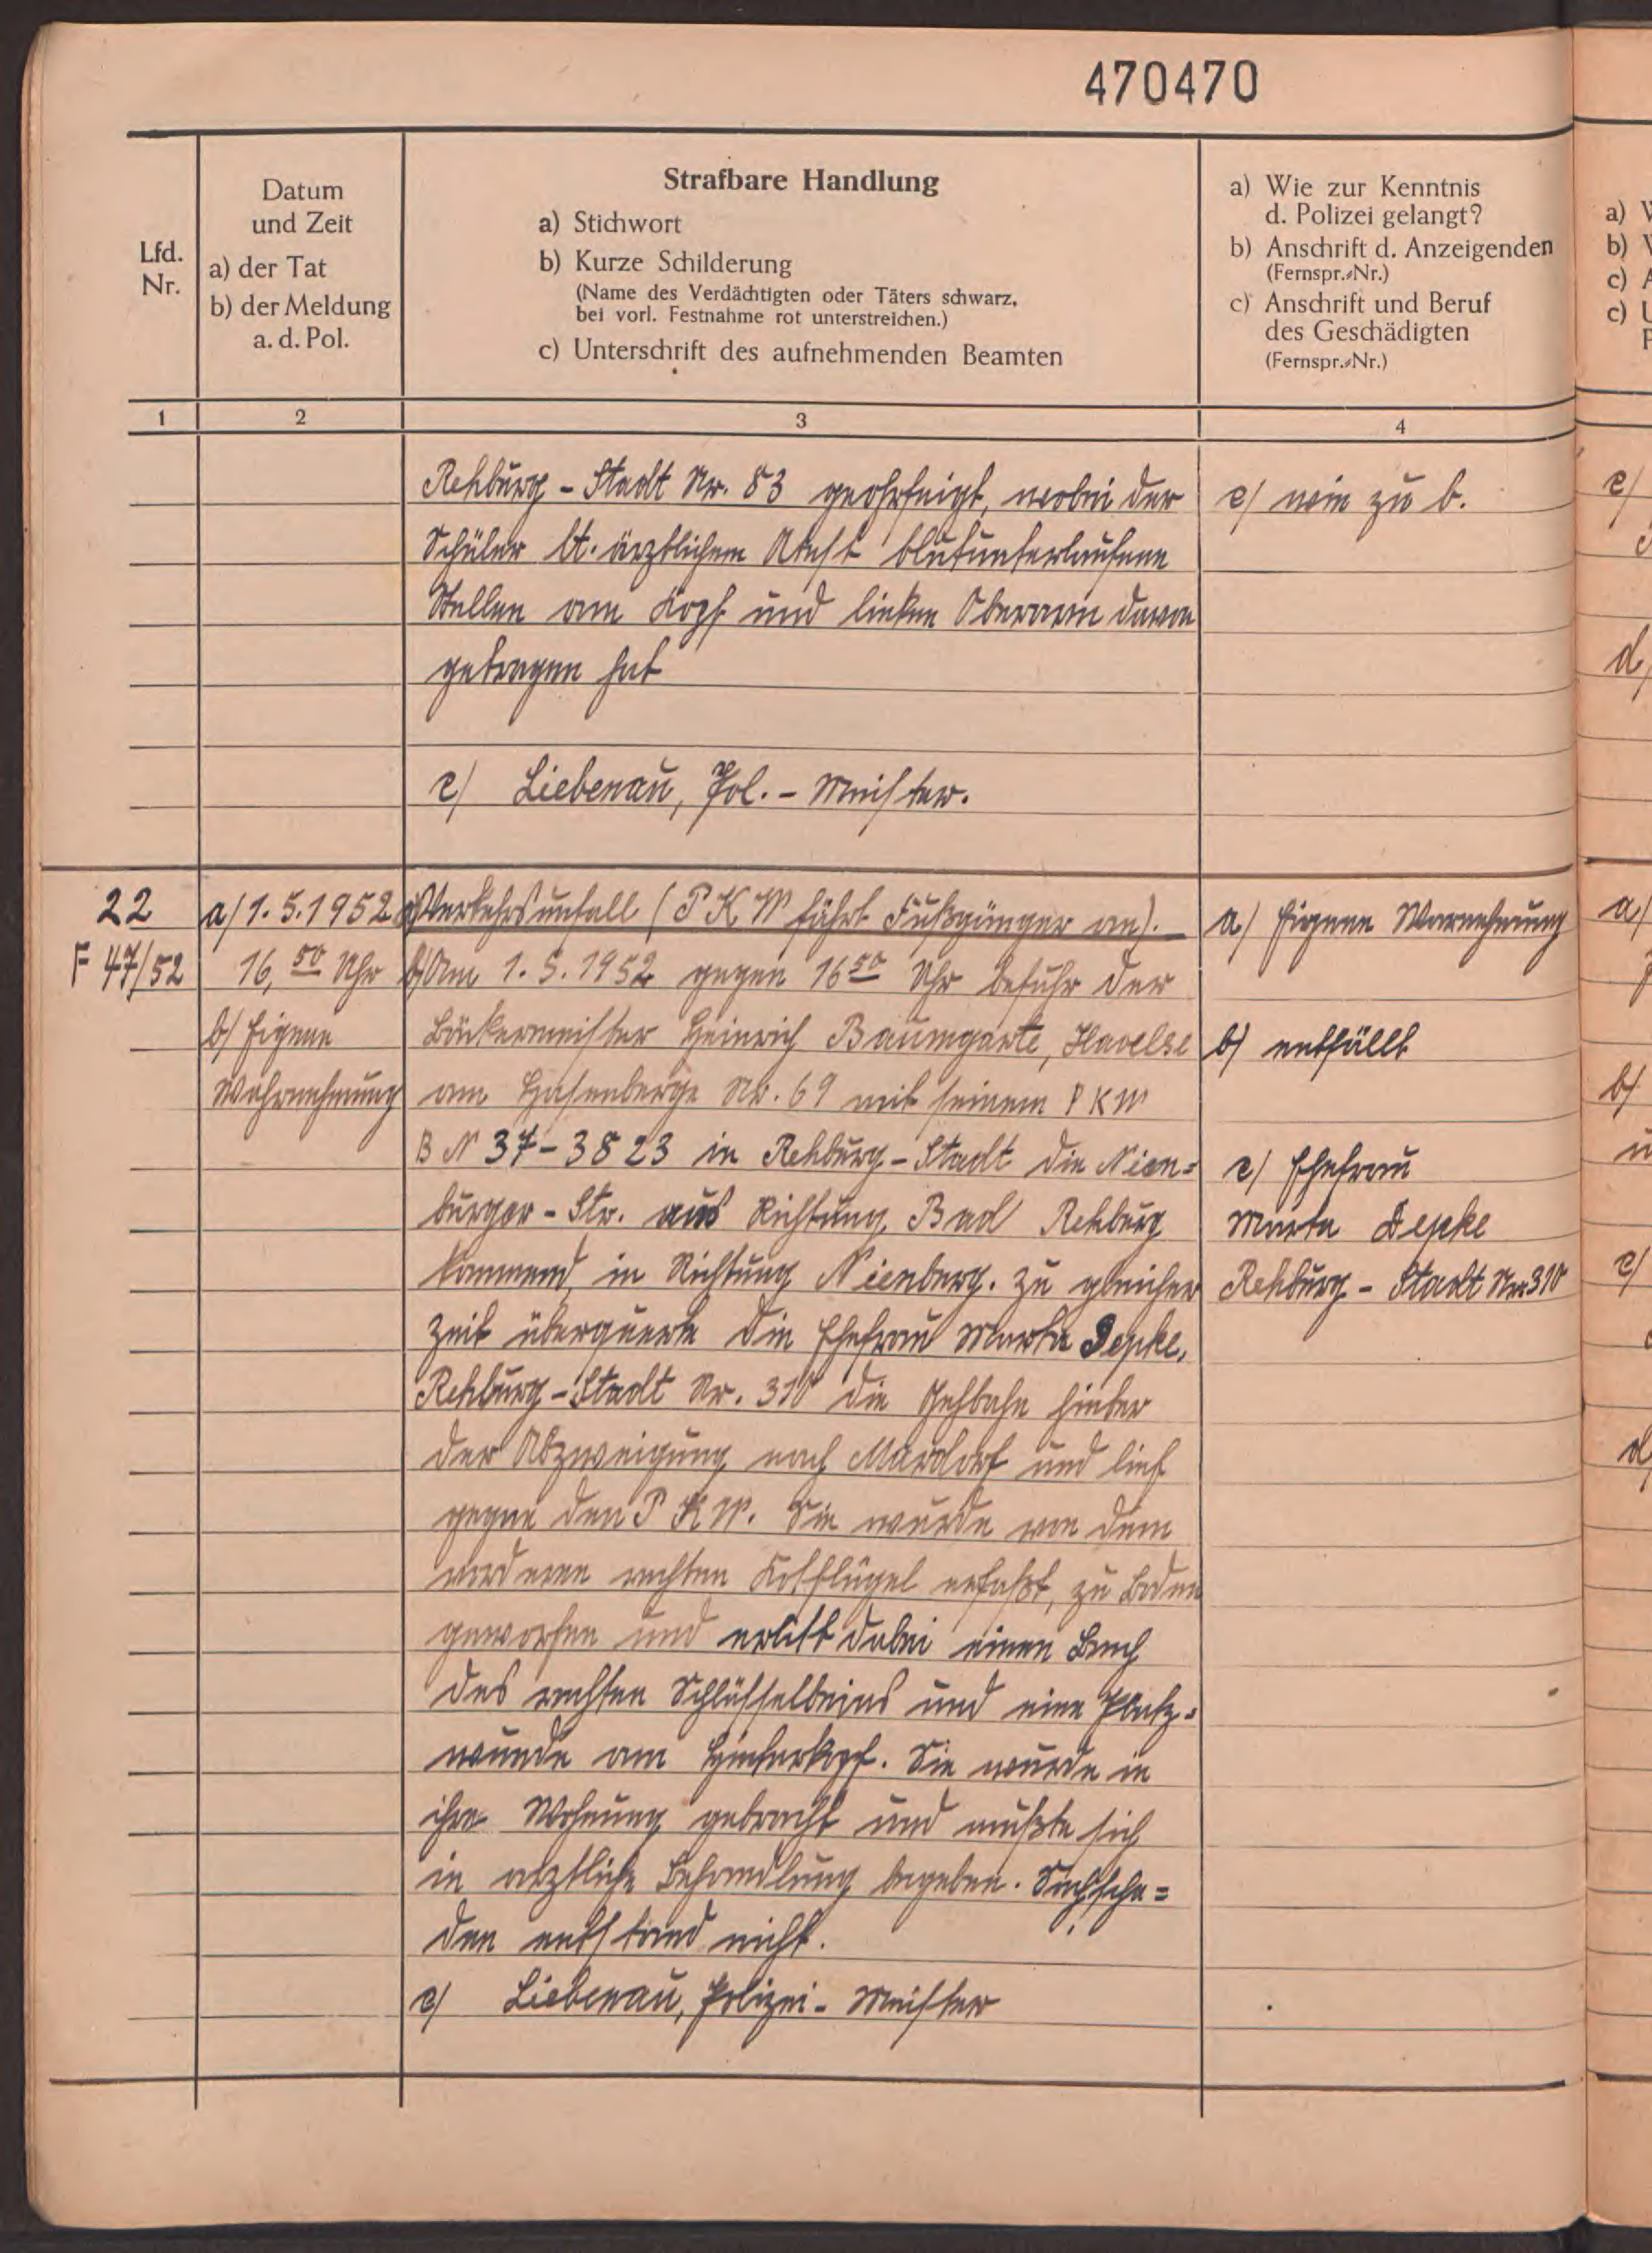 470470
Lfd.
Nr.
Datum
und Zeit
a) der Tat
b) der Meldung
a. d. Pol.
Strafbare Handlung
a) Stichwort
b) Kurze Schilderung
(Name des Verdächtigten oder Täters schwarz,
bei vorl. Festnahme rot unterstreichen.)
c) Unterschrift des aufnehmenden Beamten
a) Wie zur Kenntnis
d. Polizei gelangt?
b) Anschrift d. Anzeigenden
(Fernspr.-Nr.)
c) Anschrift und Beruf
des Geschädigten
(Fernspr.-Nr.)
1
2
3
4
Rehburg - Stadt Nr. 83 geohrfeigt, wobei der
Schüler lt. ärztlichem Atest blutunterlaufene
Stellen am Kopf und linken Oberarm davon
getragen hat
c/ Liebenau, Pol. - Meister.
c/ wie zu b.
22
F 47/52
a/ 1.5.1952
16,50 Uhr
b/ Eigene
Wahrnehmung
a) Verkehrsunfall (PKW fährt Fußgänger an).
b) Am 1.5.1952 gegen 16 50 Uhr befuhr der
Bäckermeister Heinrich Baumgarte, Havelse
am Hasenberge Nr. 69 mit seinem PKW
BN 37-3823 in Rehburg - Stadt die Nien=
burger - Str. aus Richtung Bad Rehburg
kommend, in Richtung Nienberg. Zu gleicher
Zeit überquerte die Ehefrau Marta Depke,
Rehburg - Stadt Nr. 310 die Gehbahn hinter
der Abzweigung nach Mardorf und lief
gegen den PKW. Sie wurde von dem
vorderen rechten Kotflügel erfaßt, zu Boden
geworfen und erlitt dabei einen Bruch
des rechten Schlüsselbeins und eine Platz=
wunde am Hinterkopf. Sie wurde in
ihre Wohnung gebracht und mußte sich
in arztliche Behandlung begeben. Sachscha=
den entstand nicht.
c/ Liebenau, Polizei - Meister
a/ Eigene Warnehmung
b) entfällt
c/ Ehefrau
Marta Depke
Rehburg - Stadt Nr. 310